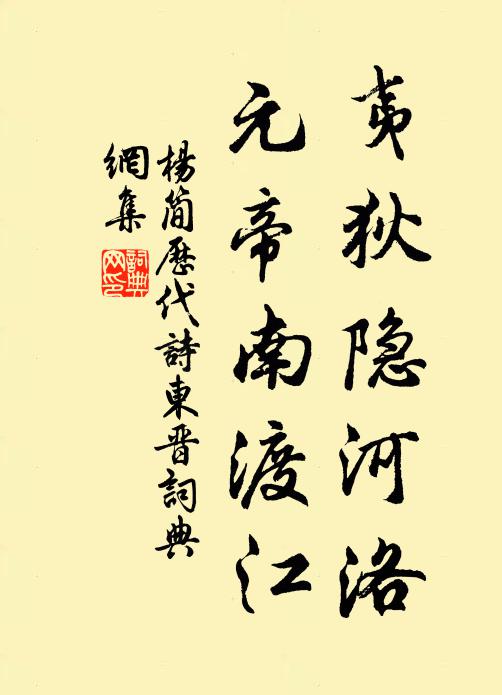 夷狄隐河洛
元帝南渡江
楊簡歷代詩東晋詞典
網集
詞典
网印